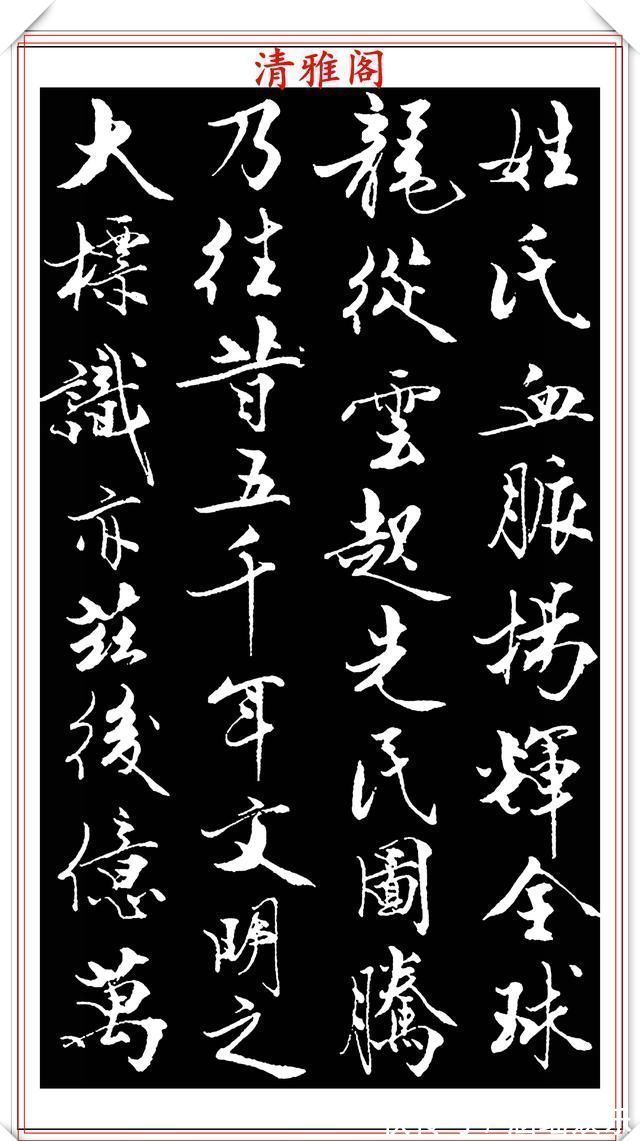 清雅阁
姓氏血脈揚輝全球
龍從雲起先民圖騰
乃往昔五千年文明之
大標識亦茲後億萬